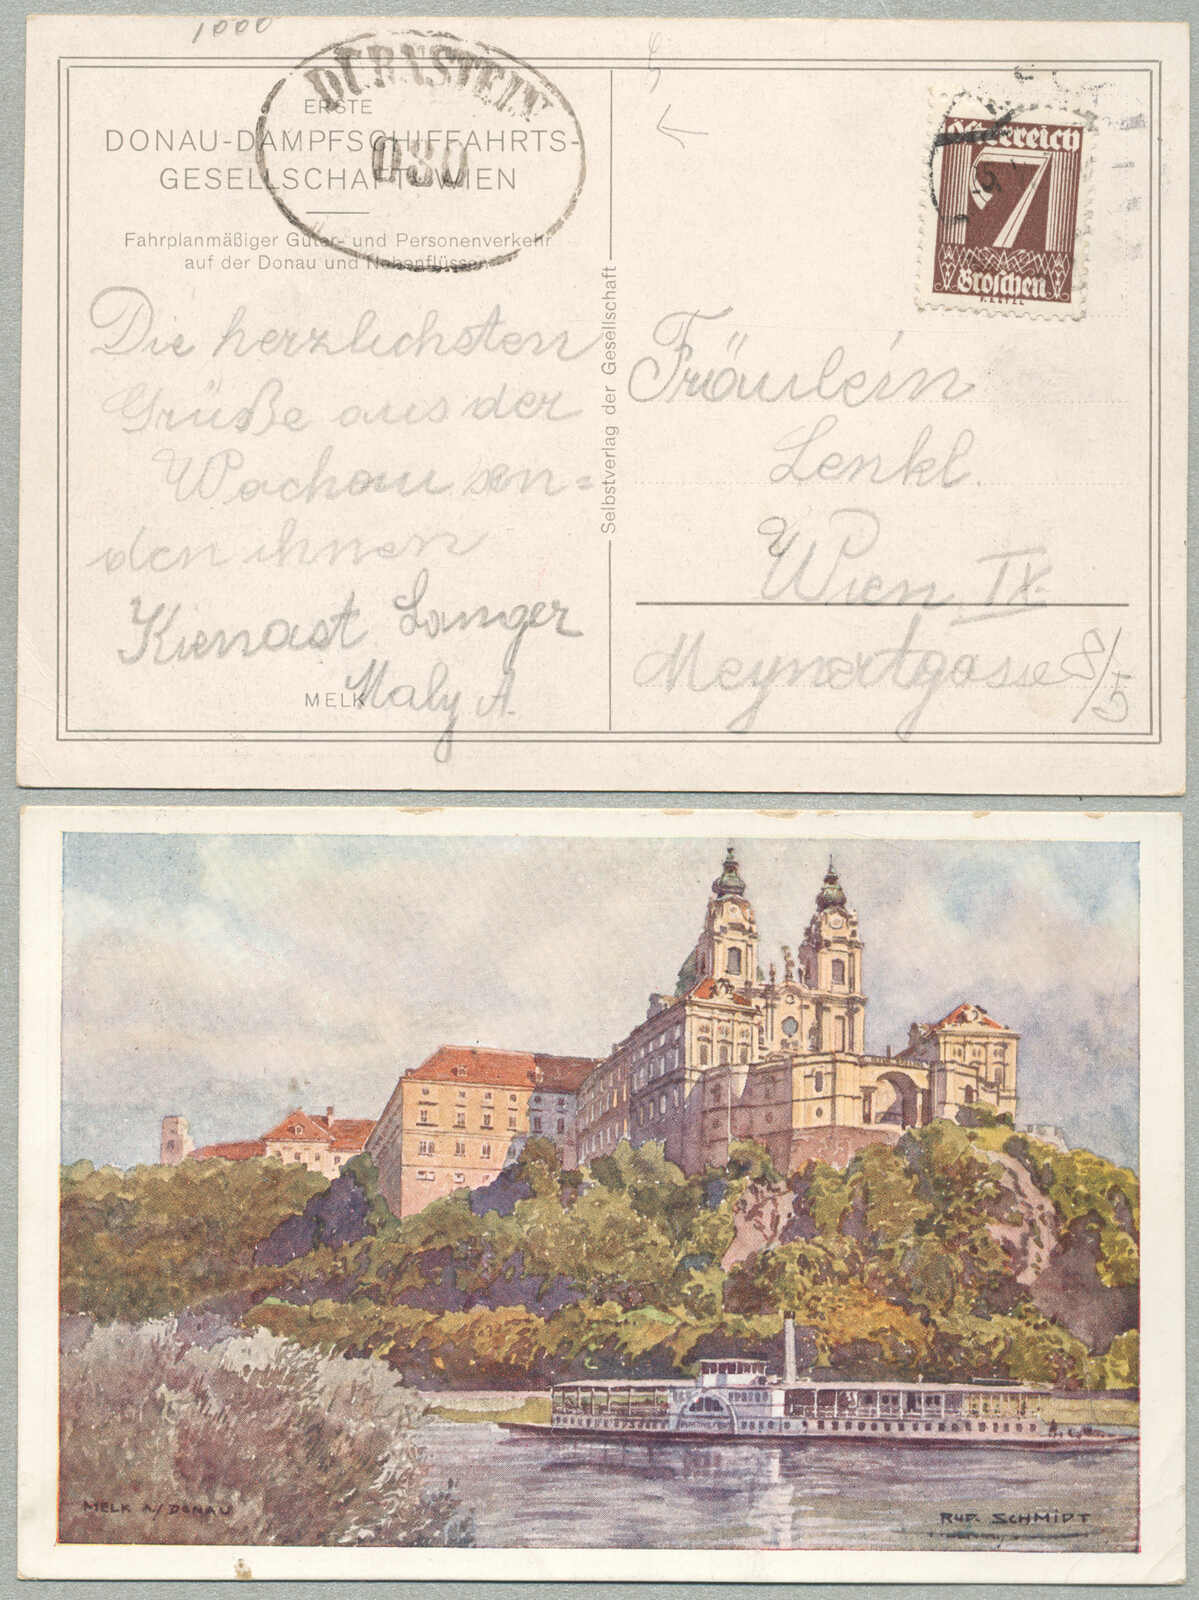 1000
DÜRNSTEIN
080
ERSTE
DONAU-DAMPFSCHIFFAHRTS-
GESELLSCHAFT WIEN
Fahrplanmäßiger Güter- und Personenverkehr
auf der Donau und Nebenflüssen
Die herzlichsten
Grüße aus der
Wachau sen=
den ihnen
Kienast Langer
Maly A.
MELK
Selbstverlag der Gesellschaft
Österreich
7
Groschen
Fräulein
Lenkl.
Wien IX.
Meynertgasse 8/5
MELK A/DONAU
RUD. SCHMIDT